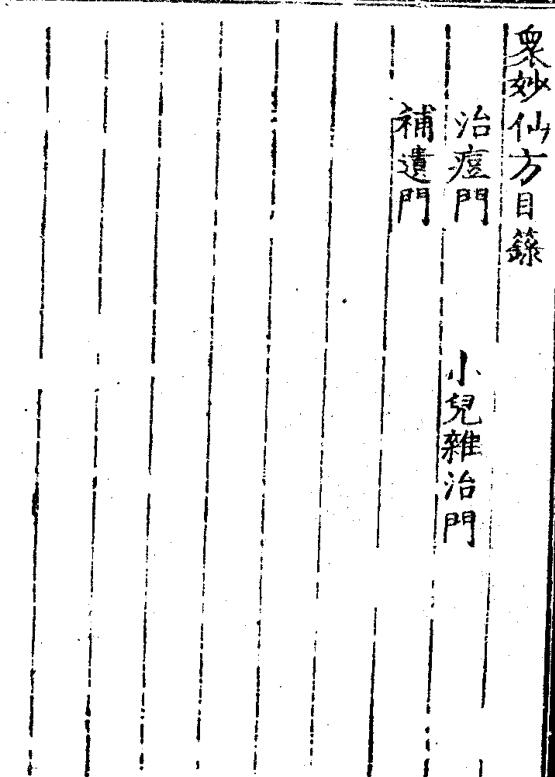 眾妙仙方目籙
治痘門　小兒雜治門
補遺門